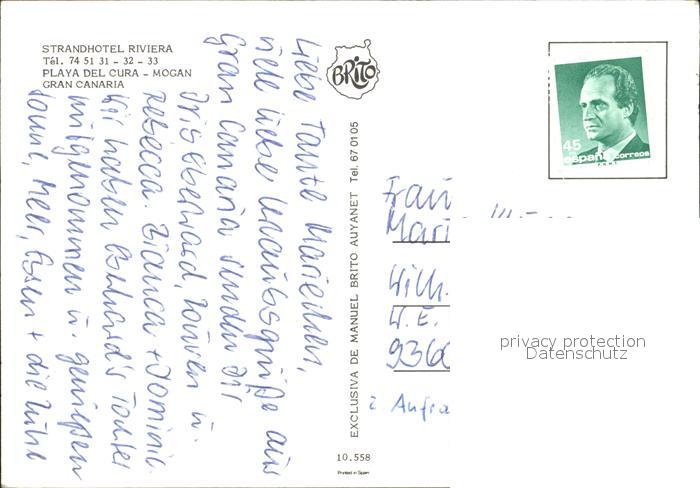 STRANDHOTEL RIVIERA
Tél. 74 51 31 - 32 - 33
PLAYA DEL CURA - MOGAN
GRAN CANARIA
Liebe Tante Mariechen,
viele liebe Urlaubsgrüße aus
Gran Canaria senden Dir
Iris, Ekkehard, u.
Rebecca. Bianca + Dominic.
Wir haben Ekkehard's Tochter
mitgenommen u. genießen
Sonne, Meer, Essen + die Ruhe
BRITO
EXCLUSIVA DE MANUEL BRITO AUYANET Tel. 67 01 05
10.558
Printed in Spain
45
españa correos
Frau
Mari
Wilh.
W. E.
9360
privacy protection
Datenschutz